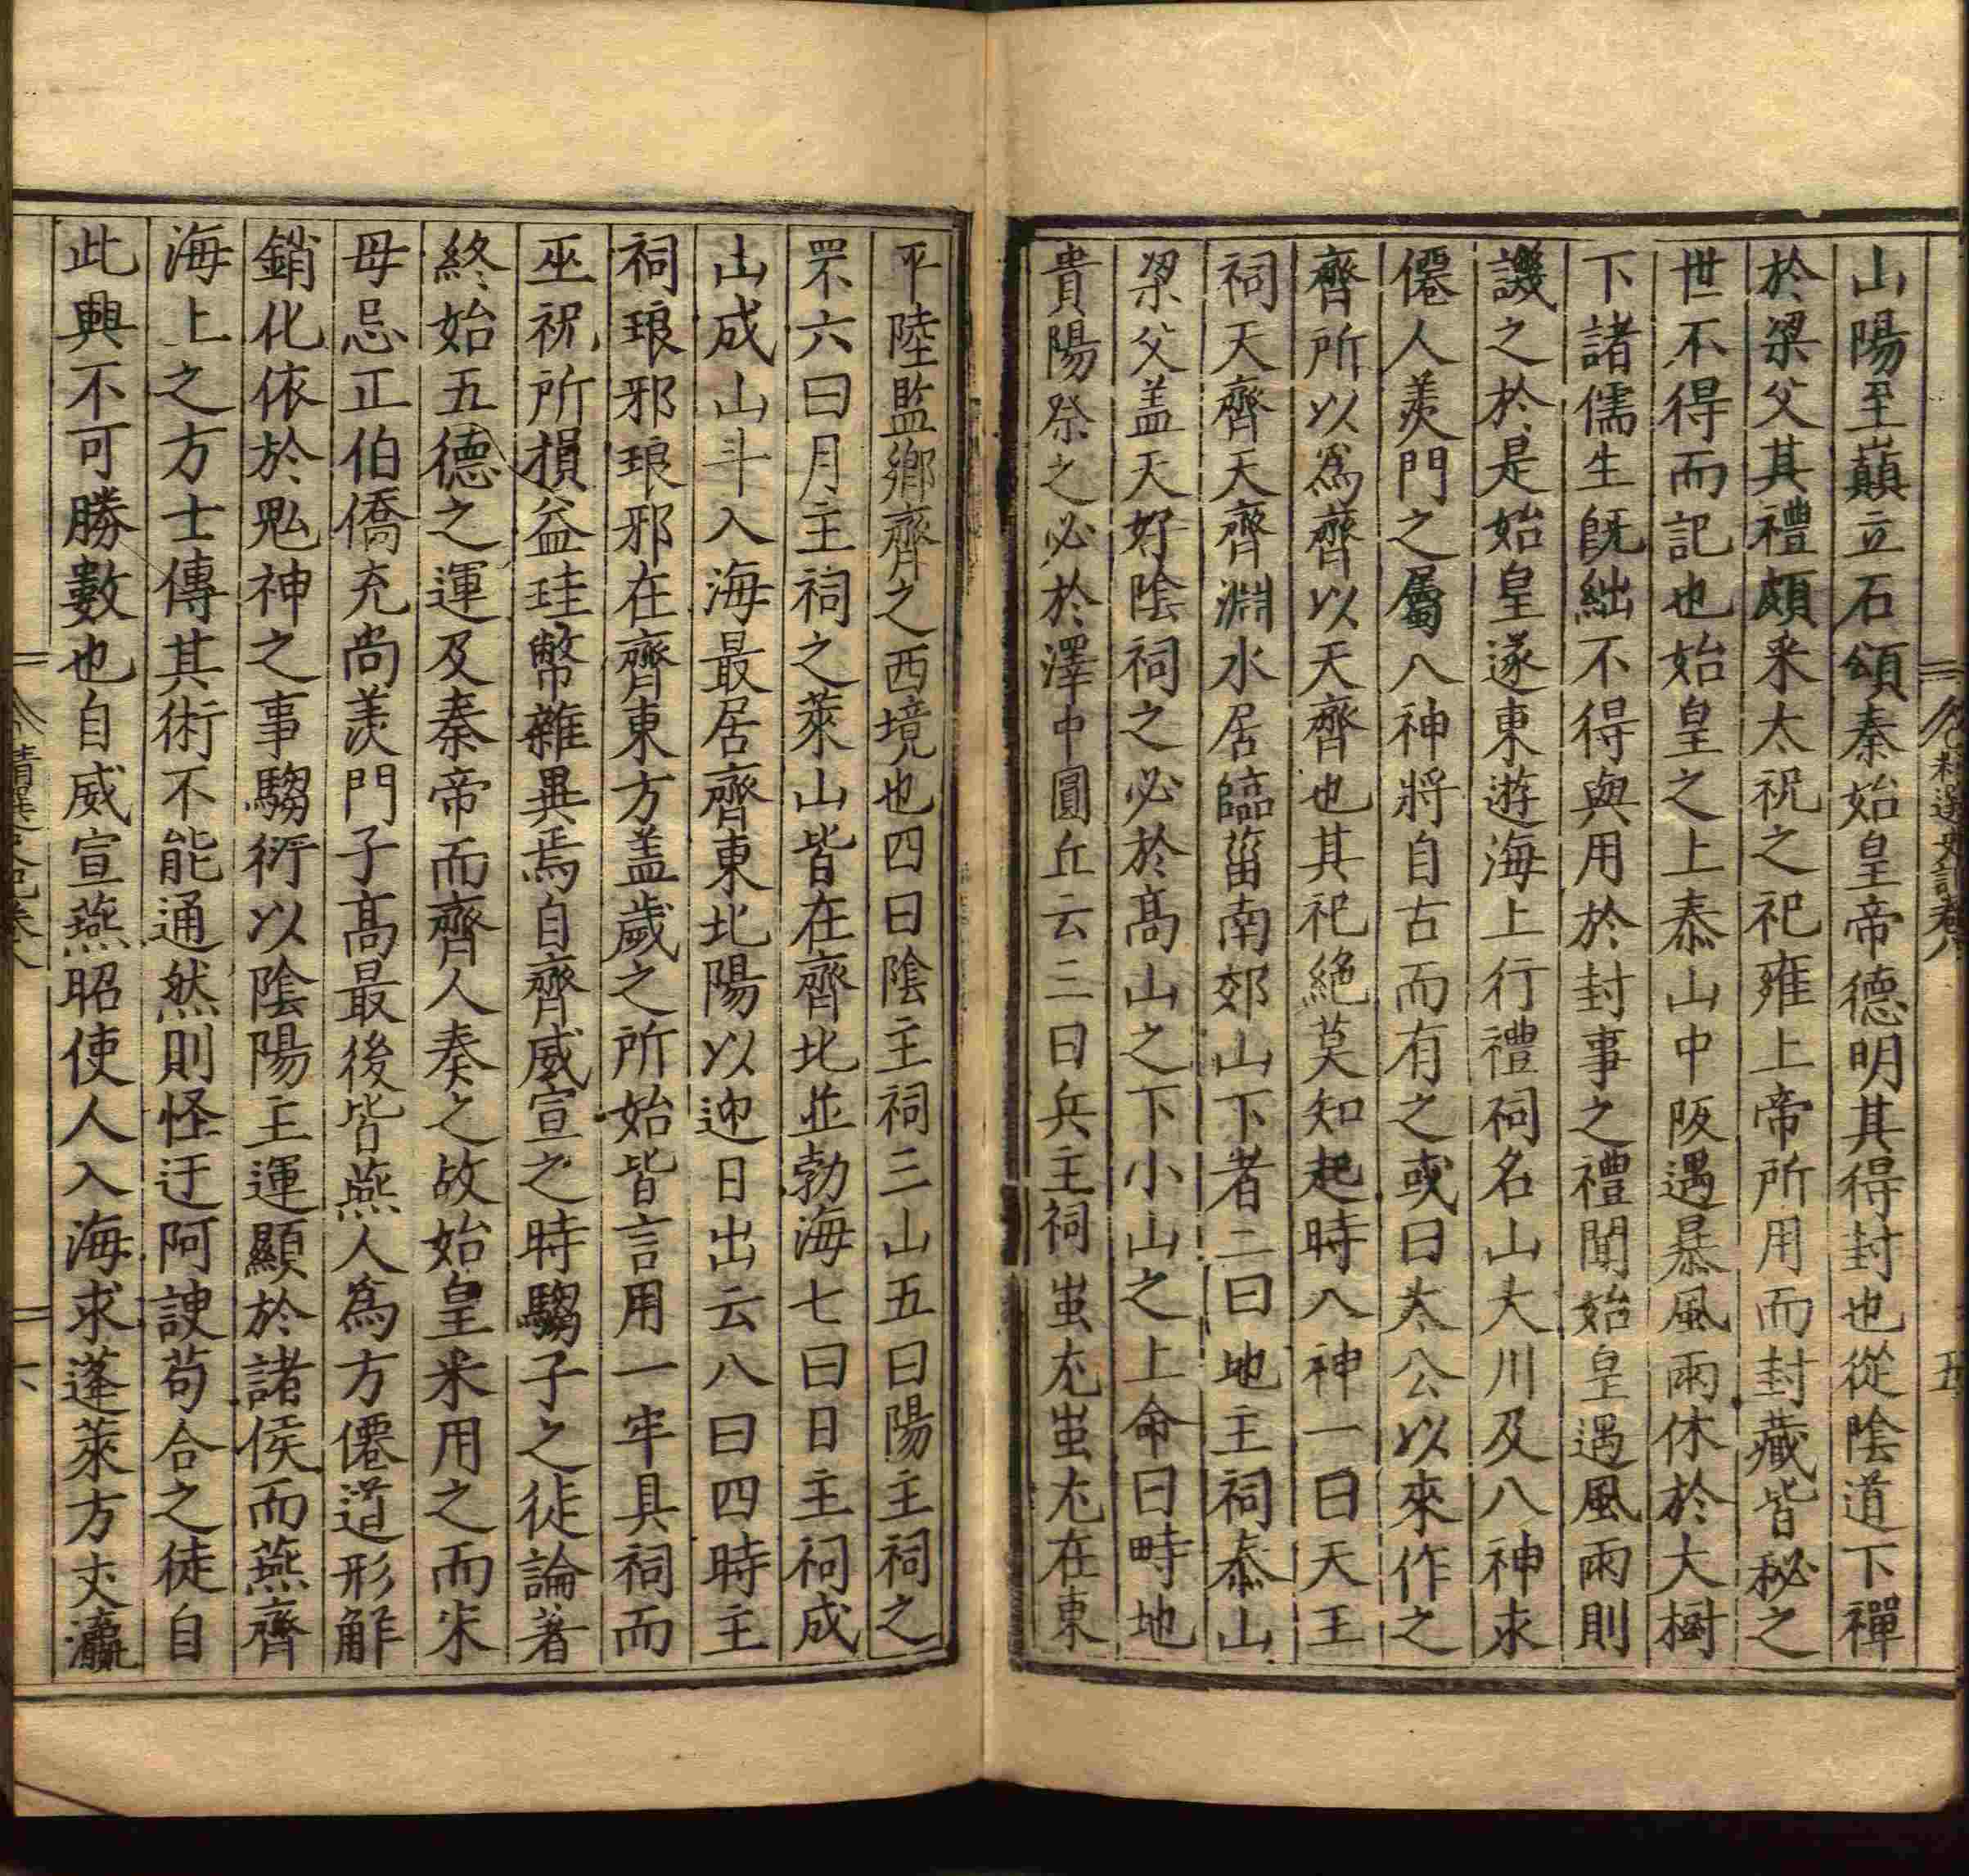 山陽至巔立石頌秦始皇帝德明其得封也從陰道下禪
於梁父其禮頗采太祝之祀雍上帝所用而封藏皆秘之
世不得而記也始皇之上泰山中阪遇暴風雨休於大樹
下諸儒生旣絀不得與用於封事之禮聞始皇遇風雨則
譏之於是始皇遂東遊海上行禮祠名山大川及八神求
僊人羨門之屬八神將自古而有之或曰太公以來作之
齊所以爲齊以天齊也其祀絕莫知起時八神一曰天主
祠天齊天齊淵水居臨菑南郊山下者二曰地主祠泰山
梁父盖天好陰祠之必於高山之下小山之上命曰畤地
貴陽祭之必於澤中圓丘云三曰兵主祠蚩尤蚩尤在東
平陸監鄉齊之西境也四曰陰主祠三山五曰陽主祠之
罘六曰月主祠之萊山皆在齊北並勃海七曰日主祠成
山成山斗入海最居齊東北陽以迎日出云八曰四時主
祠琅邪琅邪在齊東方盖歲之所始皆言用一牢具祠而
巫祝所損益珪幣雜異焉自齊威宣之時騶子之徒論著
終始五德之運及秦帝而齊人奏之故始皇采用之而宋
毋忌正伯僑充尚羨門子高最後皆燕人爲方僊道形解
銷化依於鬼神之事騶衍以陰陽主運顯於諸侯而燕齊
海上之方士傳其術不能通然則怪迂阿諛苟合之徒自
此興不可勝數也自威宣燕昭使人入海求蓬萊方丈瀛
精選史記卷八
五
精選史記卷八
六